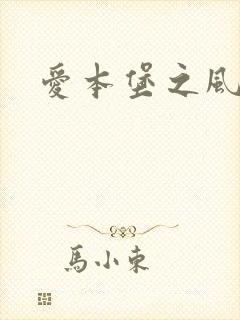 愛本堡之風
馬小東